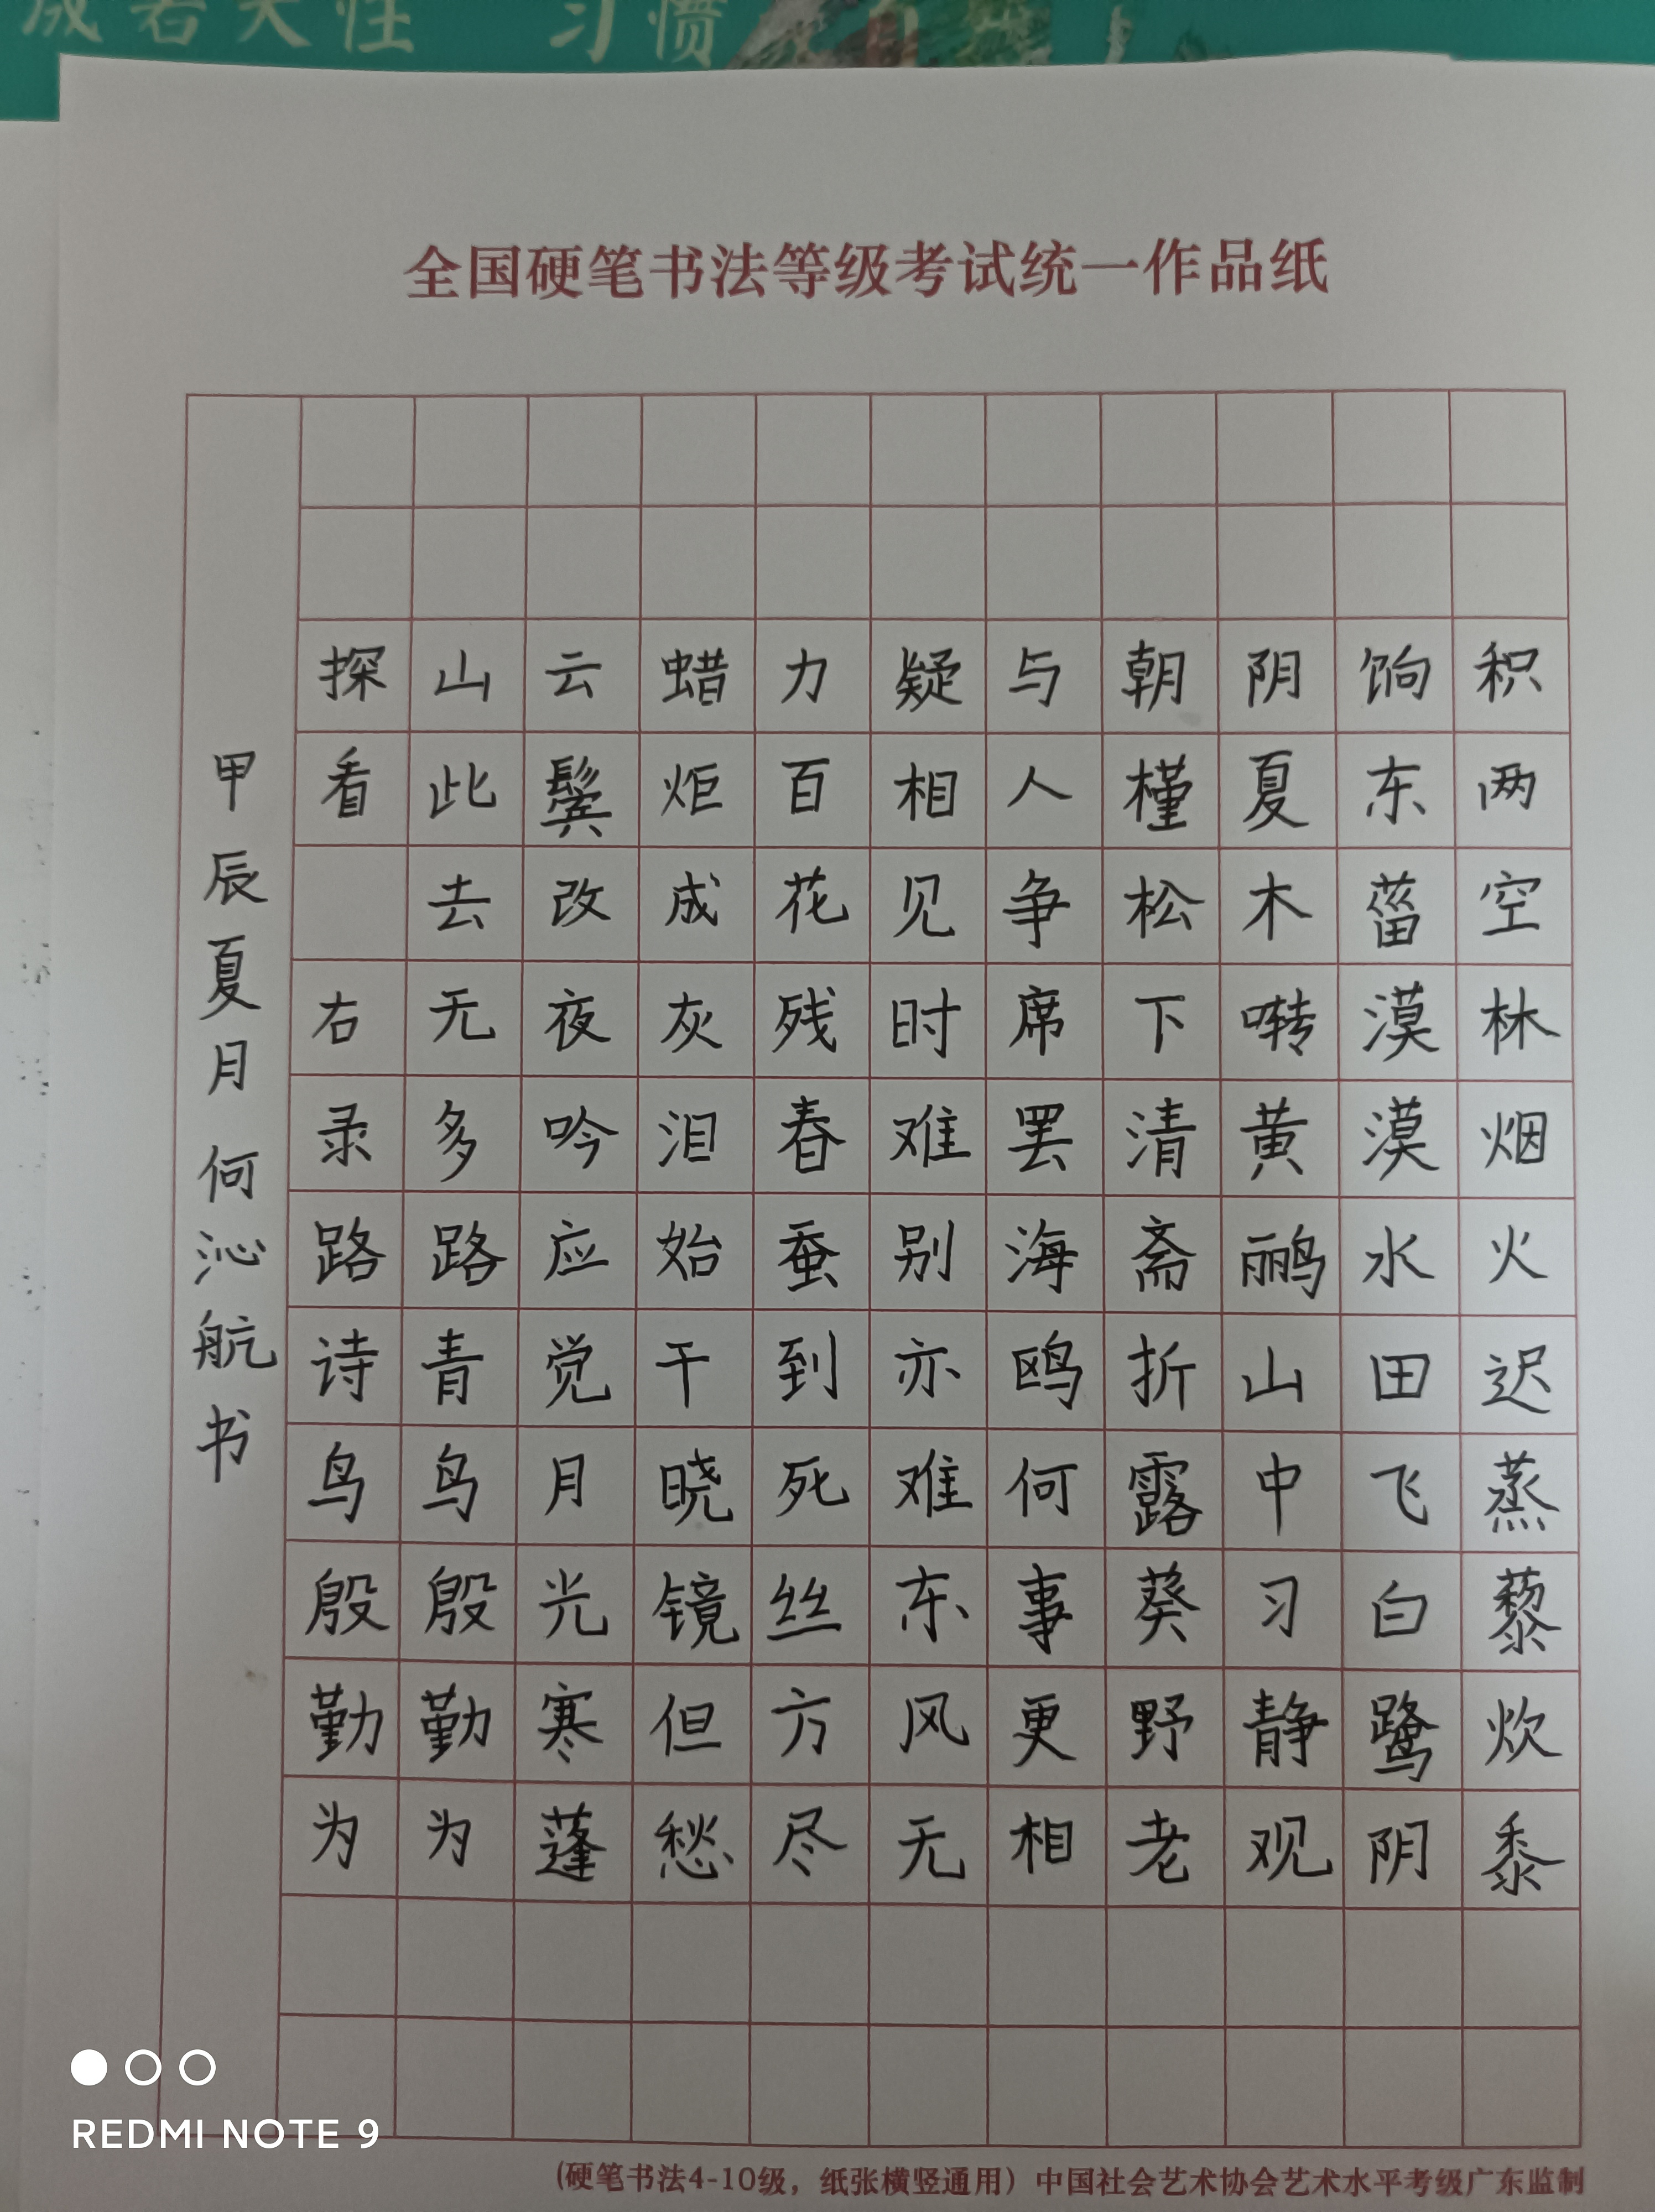 成若天性 习惯
全国硬笔书法等级考试统一作品纸
积两空林烟火迟蒸藜炊黍
饷东菑漠漠水田飞白鹭阴
阴夏木啭黄鹂山中习静观
朝槿松下清斋折露葵野老
与人争席罢海鸥何事更相
疑相见时难别亦难东风无
力百花残春蚕到死丝方尽
蜡炬成灰泪始干晓镜但愁
云鬓改夜吟应觉月光寒蓬
山此去无多路青鸟殷勤为
探看 右录路诗鸟殷勤为
甲辰夏月何沁航书
(硬笔书法4-10级，纸张横竖通用）中国社会艺术协会艺术水平考级广东监制
REDMI NOTE 9